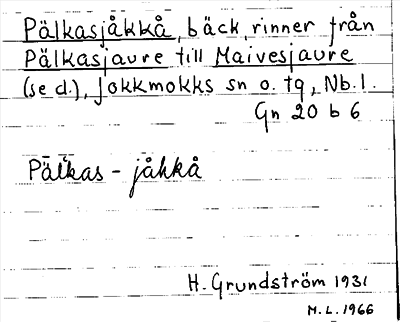 Pälkasjåkkå, bäck, rinner från
Pälkasjaure till Maivesjaure
(se d.), Jokkmokks sn o. tg, Nb. l.
Gn 20 b 6
Pälkas - jåkkå
H. Grundström 1931
M. L. 1966